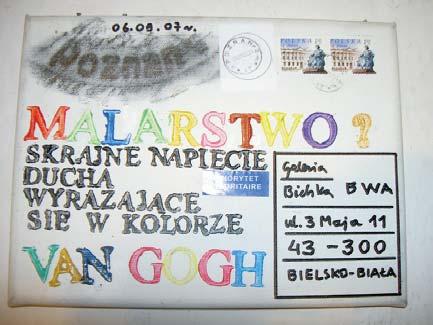 06.09.07r.
POZNAŃ
POLSKA
POLSKA
MALARSTWO?
SKRAJNE NAPIĘCIE
DUCHA
WYRAŻAJĄCE
SIĘ W KOLORZE
VAN GOGH
PRIORYTET
PRIORITAIRE
Galeria
Bielska BWA
ul. 3 Maja 11
43-300
BIELSKO-BIAŁA